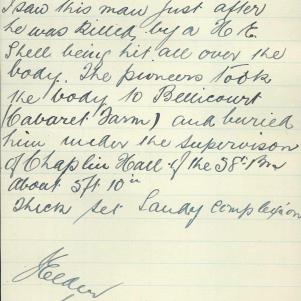 I saw this man just after
he was killed by a H.E.
Shell being hit all over the
body. The pioneers took
the body to Bellicourt
(Cabaret Farm) and buried
him under the supervison
of Chaplin Hall of the 38th Bn
about 5ft 10in
thick set Sandy complexion